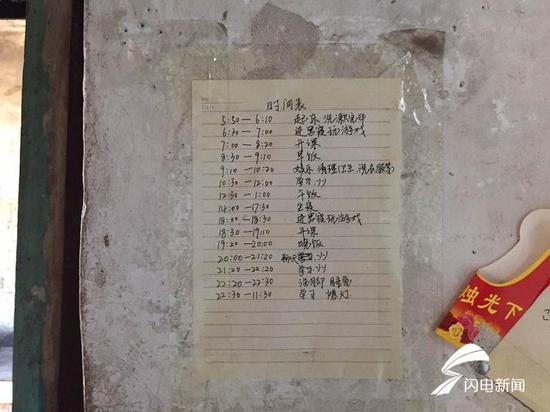 时间表
5:50—6:10 起床 洗漱完毕
6:30—7:00 进黑寝玩游戏
7:00—8:20 开课
8:30—9:10 早饭
9:10—10:20 娱乐 清理卫生 洗衣服等
10:30—12:00 学习
12:30—1:00 午饭
14:00—17:30
18:00—18:30 进黑寝玩游戏
18:30—19:10 开课
19:20—20:00 晚饭
20:00—21:20
21:20—22:20 学习
22:20—22:30 洗脚 睡觉
22:30—11:30 学习 熄灯
烛光下
闪电新闻